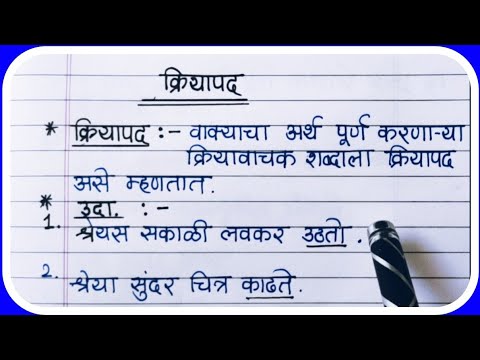 क्रियापद
* क्रियापद :- वाक्याचा अर्थ पूर्ण करणाऱ्या
क्रियावाचक शब्दाला क्रियापद
असे म्हणतात.
* उदा. :-
1. श्रेयस सकाळी लवकर उठतो.
2. श्रेया सुंदर चित्र काढते.